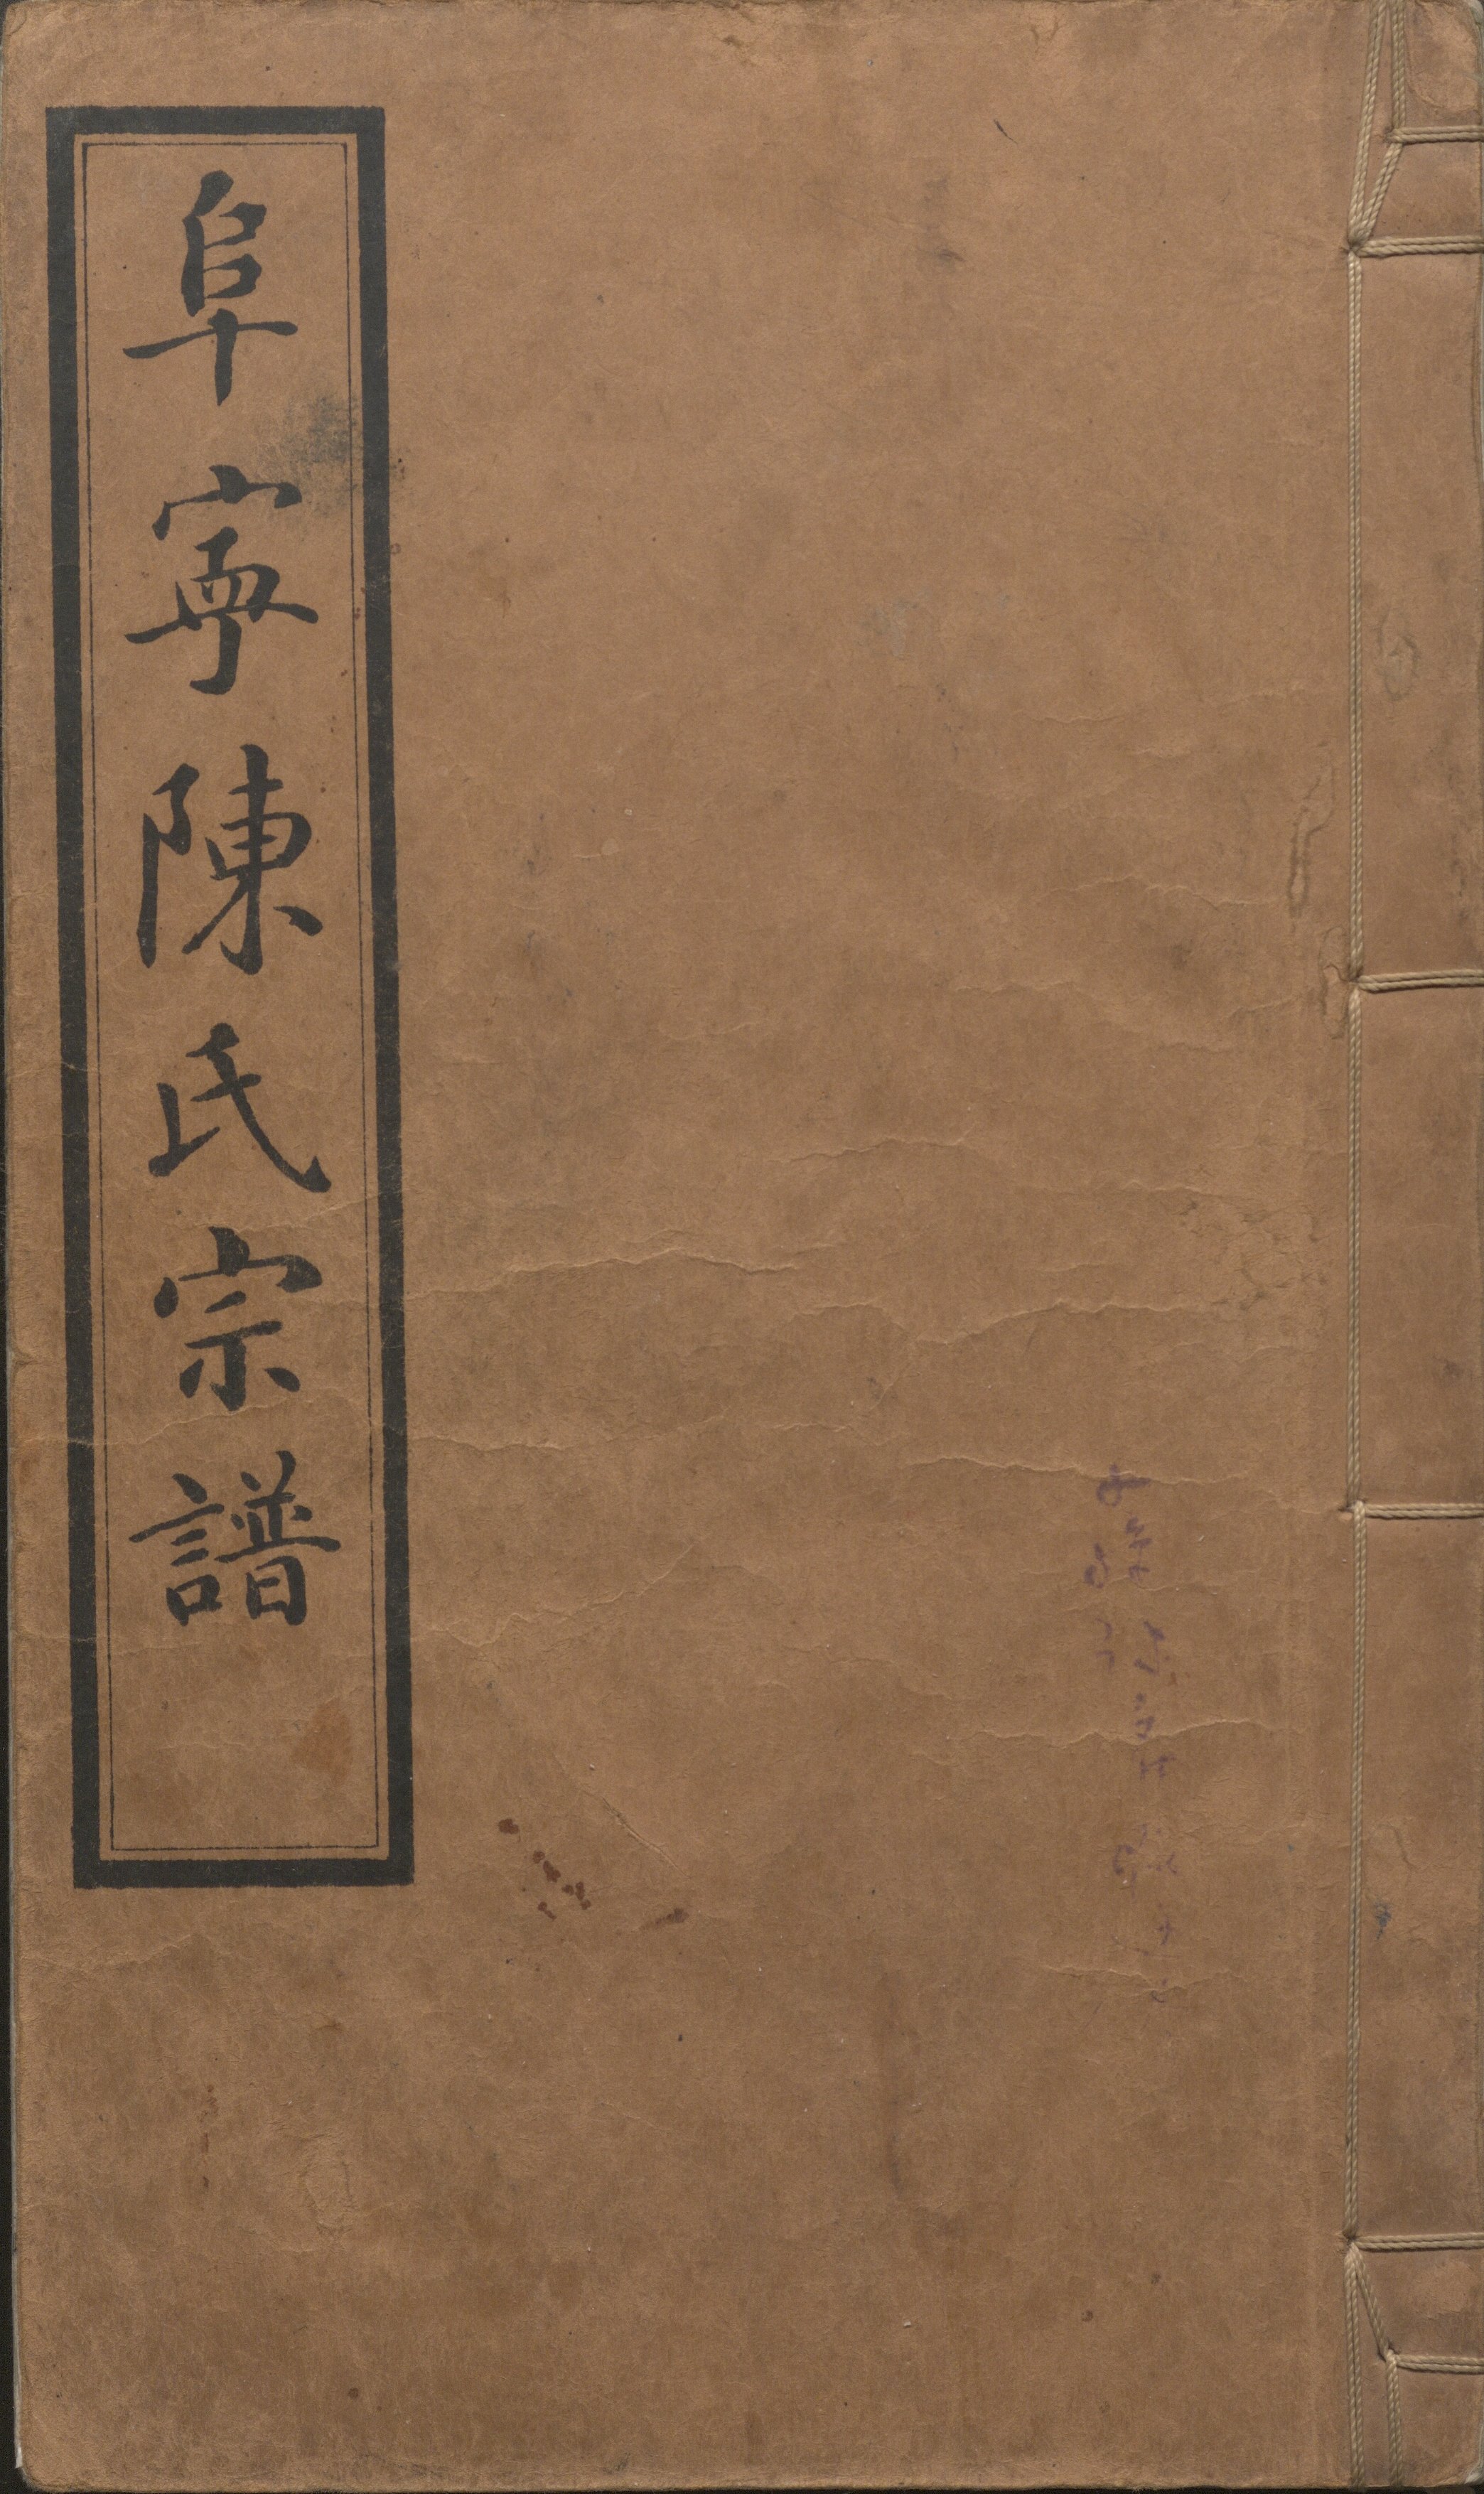 阜寧陳氏宗譜